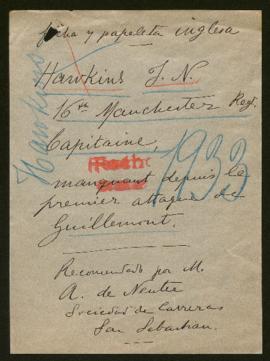 ficha y papeleta inglesa
Hawkins J. N.
16th Manchester Reg.
Capitaine,
manquant depuis le
premier attaque de
Guillemont.
Hawkins
1933
Recomendado por M.
A. de
Sociedad de Carreras
San Sebastian.